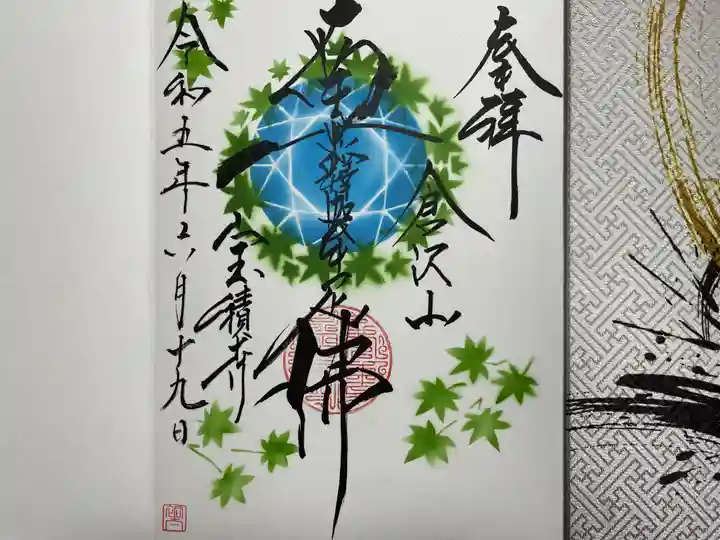 奉拝
倉沢山
南無釋迦牟尼佛
宝積寺
令和五年六月十九日